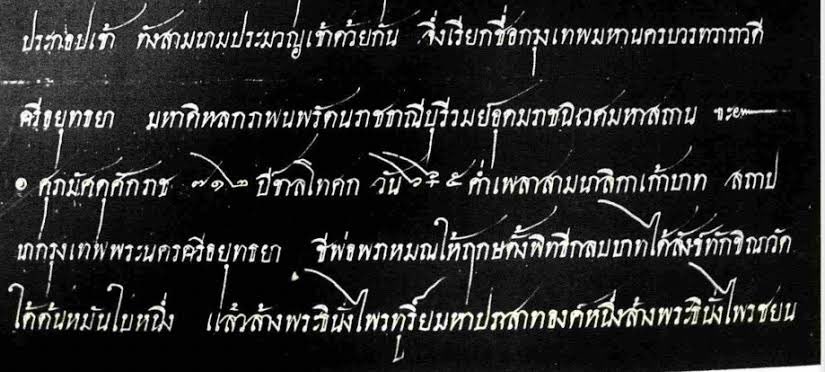 ประกอบเข้า ทังสามนามประมวญเข้าด้วยกัน จึ่งเรียกชื่อกรุงเทพมหานครบวรทวาราวดี
ศรีอยุทธยา มหาดิหลกภพนพรัตนราชธาณีบุรีรมย์อุดมราชนิเวศมหาสถาน ๚ะ๛
๏ ศุภมัศดุศักราช ๗๑๒ ปีขาลโทศก วัน ๖ ๕ ค่ำเพลาสามนาลิกาเก้าบาท สถาป
นากรุงเทพพระนครศรีอยุทธยา ชีพ่อพราหมณให้ฤกษตั้งพิทธีกลบบาทได้สังข์ทักขิณวัด
ใต้ต้นหมันใบหนึ่ง แล้วส้างพระธินั่งไพรทูริ์ยมหาปราสาทองค์หนึ่งส้างพระธินั่งไพรชยน